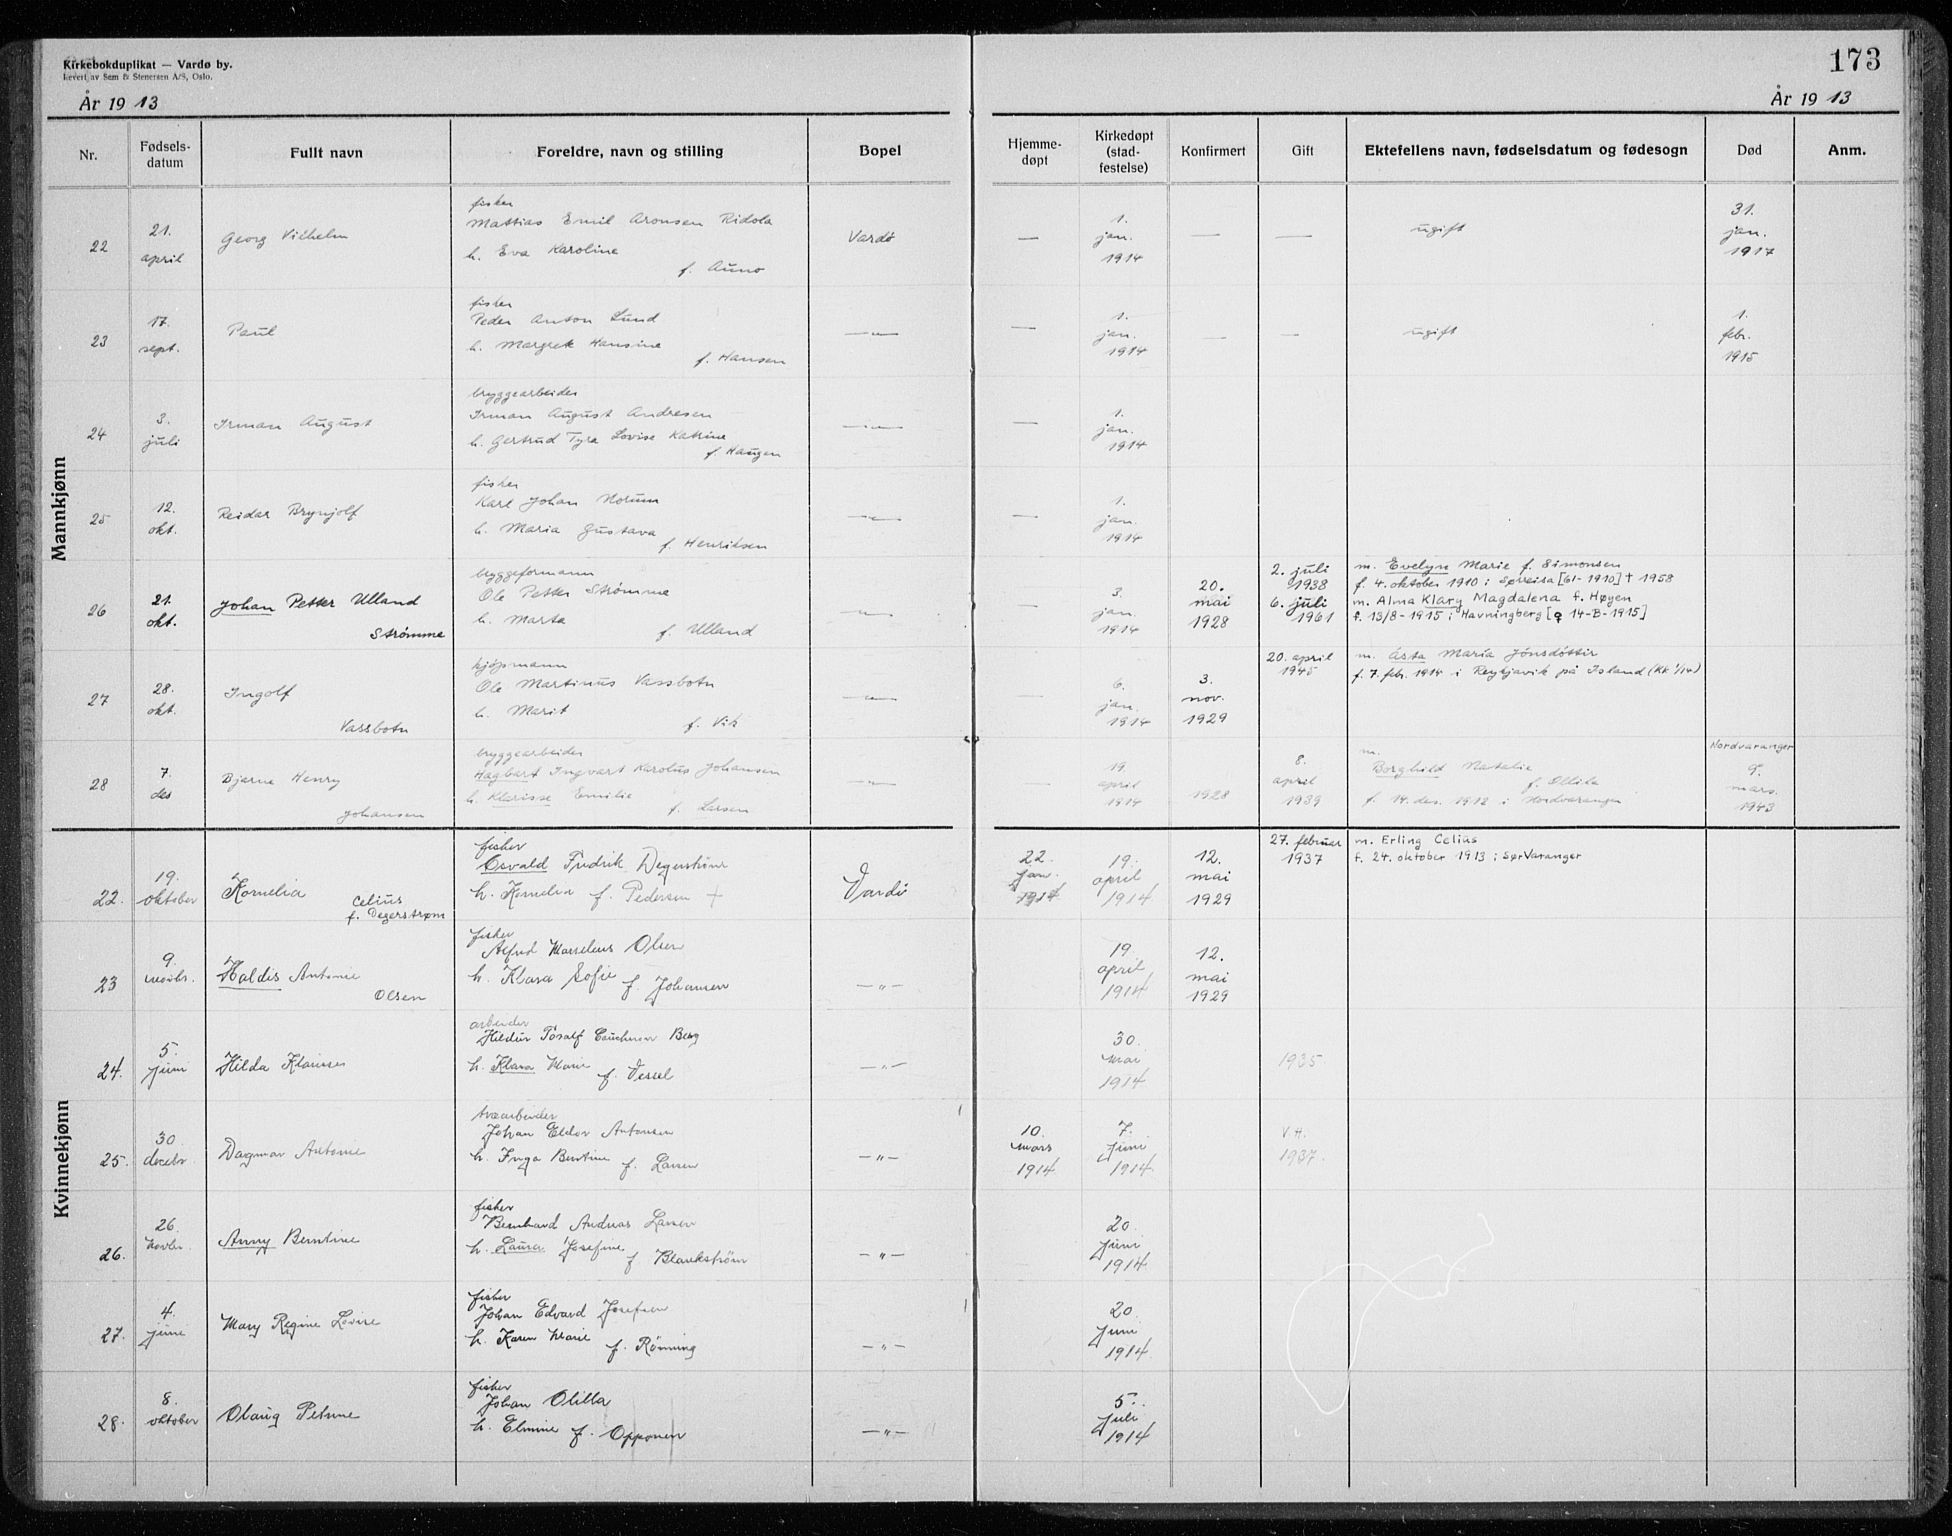 Kirkebokduplikat — Vardø by.
Levert av Sem & Stenersen A/S, Oslo.
År 19 13
173
År 19 13
Nr.
Fødsels-
datum
Fullt navn
Foreldre, navn og stilling
Bopel
Hjemme-
døpt
Kirkedøpt
(stad-
festelse)
Konfirmert
Gift
Ektefellens navn, fødselsdatum og fødesogn
Død
Anm.
Mannkjønn
22
21.
april
Georg Vilhelm
fisker
Mattias Emil Aronsen Ridola
h. Eva Karoline
f. Auno
Vardø
—
1.
jan.
1914
—
—
ugift
31.
jan.
1917
23
17.
sept.
Paul
fisker
Peder Anton Lund
h. Margrek Hansine
f. Hansen
—"—
—
1.
jan.
1914
—
—
ugift
1.
febr.
1915
24
3.
juli
Irman August
bryggearbeider
Irman August Andresen
h. Gertrud Tyra Lovise Katrine
f. Haugen
—"—
—
1.
jan.
1914
25
12.
okt.
Reidar Brynjolf
fisker
Karl Johan Norum
h. Maria Gustava
f. Henriksen
—"—
—
1.
jan.
1914
26
21.
okt.
Johan Petter Ulland
Strømme
bryggeformann
Ole Petter Strømme
h. Marta
f. Ulland
—"—
—
3.
jan.
1914
20.
mai
1928
2. juli
1938
6. juli
1961
m. Evelyn Marie f. Simonsen
f. 4. oktober 1910 i Sørreisa [61-1910] † 1958
m. Alma Klary Magdalena f. Høyen
f. 13/8-1915 i Havningberg [♀ 14-B-1915]
27
28.
okt.
Ingolf
Vassbotn
kjøpmann
Ole Martinus Vassbotn
h. Marit
f. Vik
—"—
—
6.
jan.
1914
3.
nov.
1929
20. april
1945
m. Ásta María Jónsdóttir
f. 7. feb. 1914 i Reykjavik på Island (KK 1/14)
28
7.
des
Bjarne Henry
Johansen
bryggearbeider
Hagbart Ingvart Karolus Johansen
h. Klarisse Emilie
f. Larsen
—"—
—
19.
april
1914
1928
8.
april
1939
m.
Borghild Natalie
f. Ollila
f. 14. des. 1912 i Nordvaranger
Nordvaranger
9.
mars.
1943
Kvinnekjønn
22.
19.
oktober
Kornelia
Celius
f. Degerstrøm
fisker
Osvald Fredrik Degerstrøm
h. Kornelia f. Pedersen +
Vardø
22.
jan.
1914
19.
april
1914
12.
mai
1929
27. februar
1937
m. Erling Celius
f. 24. oktober 1913 i SørVaranger
23
9.
novbr.
Haldis Antonie
Olsen
fisker
Alfred Marselius Olsen
h. Klara Sofie f. Johansen
—"—
19.
april
1914
12.
mai
1929
24.
5.
juni
Hilda
arbeider
Hildur Berg
h. Klara Marie f. Vessel
—"—
30.
mai
1914
1935
25.
30.
decebr.
Dagmar Antonie
Johan Eldor Antonsen
h. Inga Berntine f. Larsen
—"—
10.
mars
1914
7.
juni
1914
V.H.
1937.
26.
26.
novbr.
Anny Berntine
fisker
Bernhard Andreas Larsen
h. Laura Josefine f Blankstrøm
—"—
20.
juni
1914
27.
4.
juni
Mary Regine Lovise
fisker
Johan Edvard Josefsen
h. Karen Marie f. Rönning
—"—
20.
juni
1914
28.
8.
oktober
Olaug Petrine
fisker
Johan Olilla
h. Elmine f. Opponen
—"—
5.
juli
1914